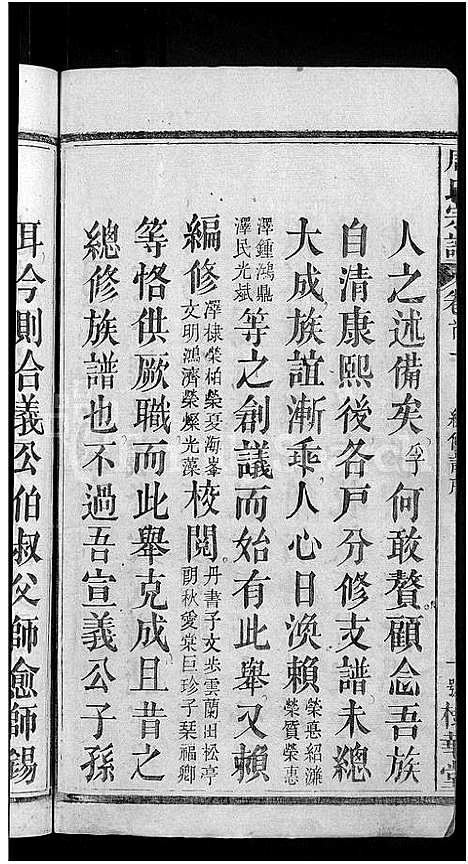 人之述備矣孚何敢贅顧念吾族
自清康熙後各戸分修支譜未總
大成族誼漸乖人心日渙賴榮惠紹濂
榮賓榮惠
澤鍾鴻鼎
澤民光斌等之創議而始有此舉又賴
編修澤棣榮柏榮夏海峯
文明鴻濟榮燦光藻校閱丹書子文步雲蘭田松亭
朗秋愛棠巨珍子琹福卿
等恪供厥職而此舉克成且昔之
總修族譜也不過吾宣義公子孫
耳今則合義公伯叔父師愈師錫